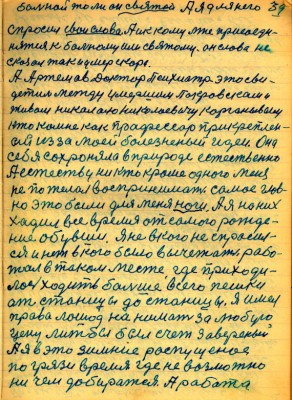 больной то ли он святой А я для него 39
спросил свои слова. А и к кому мне присоеди-
няться к больному или святому. он слова не
сказал так и умер скоро.
А Артемьев доктор Психиатр. это сви-
детель между умершим Покровским и
живым Николаю Николаевичу Корганевичу
что ко мне как профессор прикреплен-
ой из за моей болезненый идеи. Она
себя сохроняла в природе естественно
А естеству никто кроме одного меня
не пожелал воспринимать. самое глав-
но это были для меня ноги. А я на них
хадил все время от самого рожде-
ние обувши. Я не в кого не спросил-
ся и нет в кого было выежать рабо-
тал в таком месте, где приходи-
лось ходить больше всего пешки
от станицы до станицы. Я имел
права лошод на нимат за любую
цену лит бы был счет завереный
А я в это зимние роспущеное
по грязи время где не возможно
ни чем добиратся. А работа